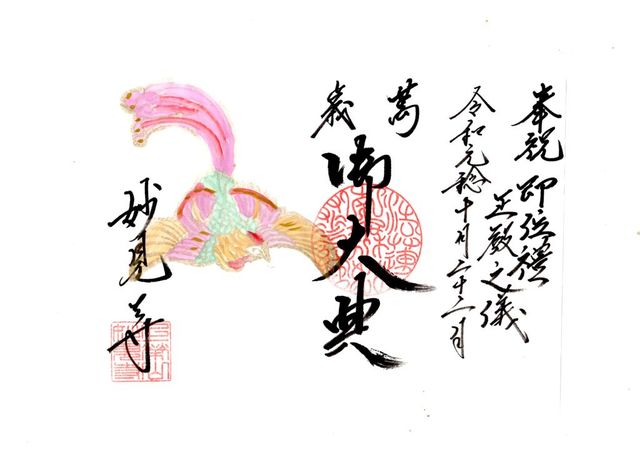 奉祝 即位禮
正殿之儀
令和元稔十月二十二日
萬歳
御大典
妙見寺